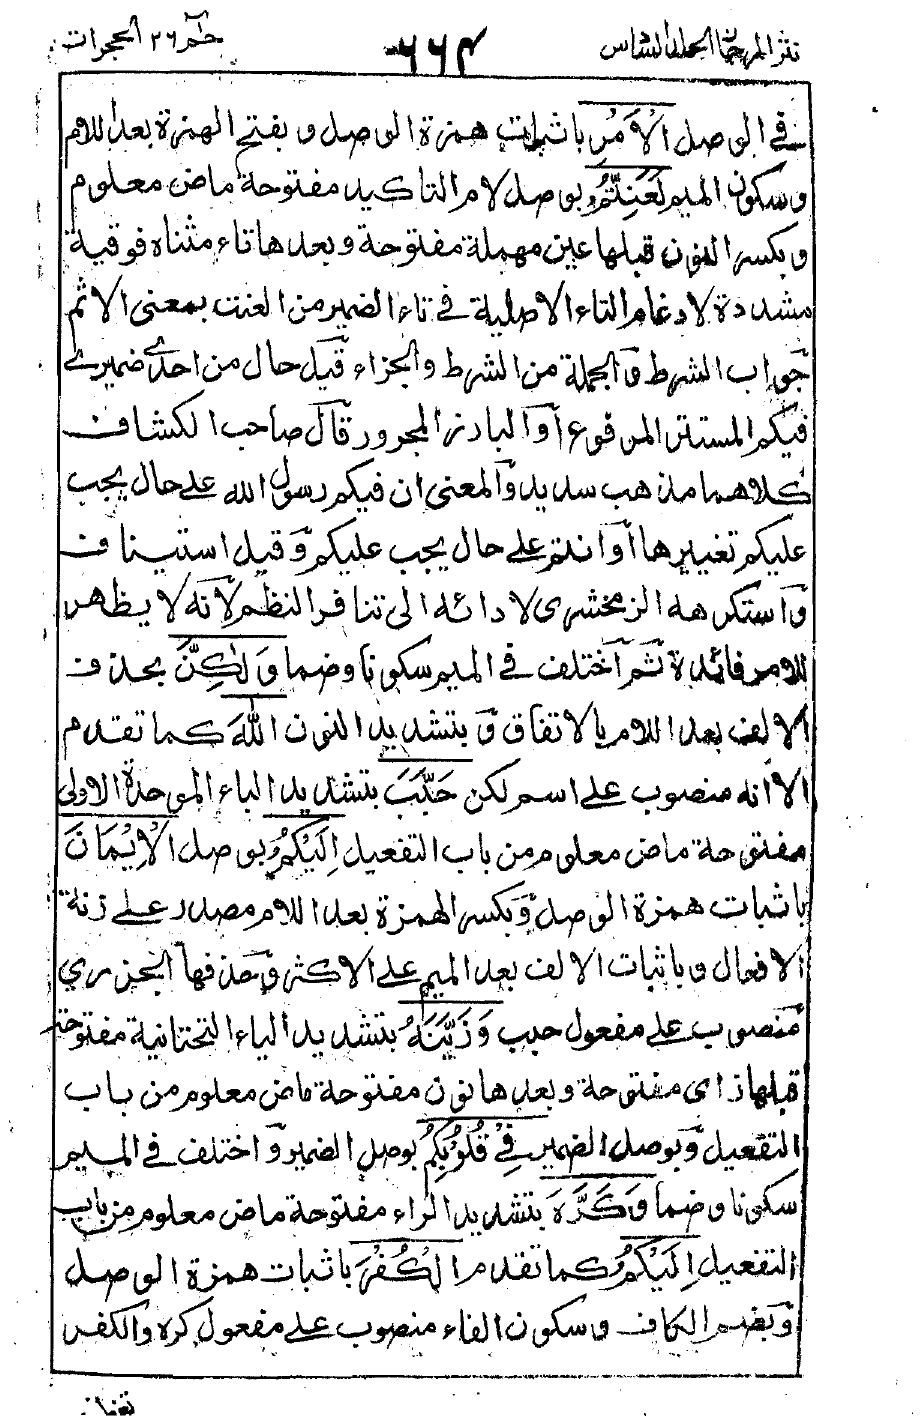 نثر المرجان الجلد السادس
٦٦٤
حٰم ٢٦ الحجرات
في الوصل الْاَمْرِ باثبات همزة الوصل وبفتح الهمزة بعد اللام
وسكون الميم لَعَنِتُّمْ بوصل لام التاكيد مفتوحة ماض معلوم
وبكسر النون قبلها عين مهملة مفتوحة وبعدها تاء مثناه فوقية
مشددة لادغام التاء الاصلية في تاء الضمير من العنت بمعنى الاثم
جواب الشرط والجملة من الشرط والجزاء قيل حال من احدى ضميرى
فيكم المستتر المرفوع او البارز المجرور قال صاحب الكشاف
كلاهما مذهب سديد والمعنى ان فيكم رسول الله على حال يجب
عليكم تغييرها او انتم على حال يجب عليكم وقيل استيناف
واستكرهه الزمخشرى لادائه الى تنافر النظم لانه لا يظهر
للامر فائدة ثم اختلف في الميم سكونا وضما وَلٰكِنَّ بحذف
الالف بعد اللام بالاتفاق وبتشديد النون اللّٰهَ كما تقدم
الا انه منصوب على اسم لكن حَبَّبَ بتشديد الباء الموحدة الاولى
مفتوحة ماض معلوم من باب التفعيل اِلَيْكُمُ بوصل الْاِيْمَانَ
باثبات همزة الوصل وبكسر الهمزة بعد اللام مصدر على زنة
الافعال وباثبات الالف بعد الميم على الاكثر وحذفها الجزري
منصوب على مفعول حبب وَزَيَّنَهُ بتشديد الياء التحتانية مفتوحة
قبلها زاى مفتوحة وبعدها نون مفتوحة ماض معلوم من باب
التفعيل وبوصل الضمير فِيْ قُلُوْبِكُمْ بوصل الضمير واختلف في الميم
سكونا وضما وَكَرَّهَ بتشديد الراء مفتوحة ماض معلوم من باب
التفعيل اِلَيْكُمُ كما تقدم الْكُفْرَ باثبات همزة الوصل
وبضم الكاف وسكون الفاء منصوب على مفعول كره والكفر